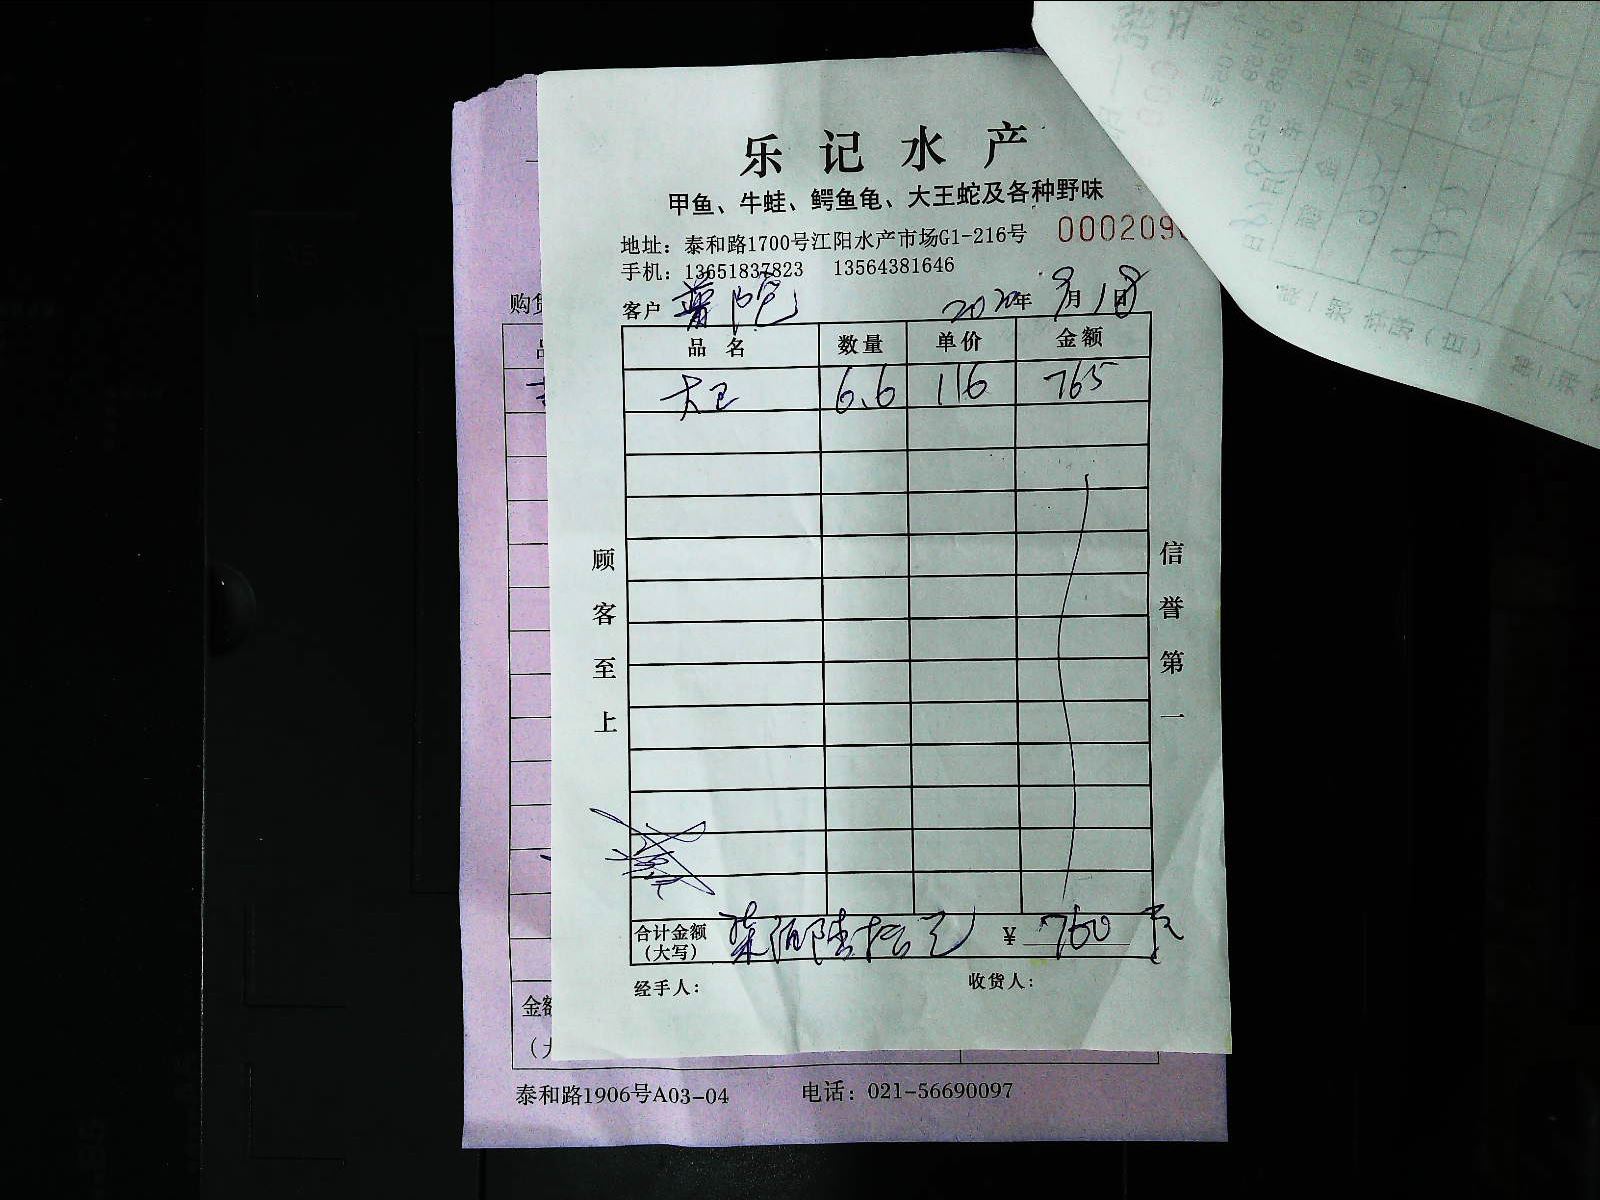 乐记水产
甲鱼、牛蛙、鳄鱼龟、大王蛇及各种野味
地址：泰和路1700号江阳水产市场G1-216号 000209
手机：13651837823 13564381646
客户 2020年 8月18日
品名 数量 单价 金额
大王 6.6 116 765
顾客至上
信誉第一
合计金额（大写） 柒佰陆拾元 ¥ 760
经手人： 收货人：
购货
金额
泰和路1906号A03-04 电话：021-56690097